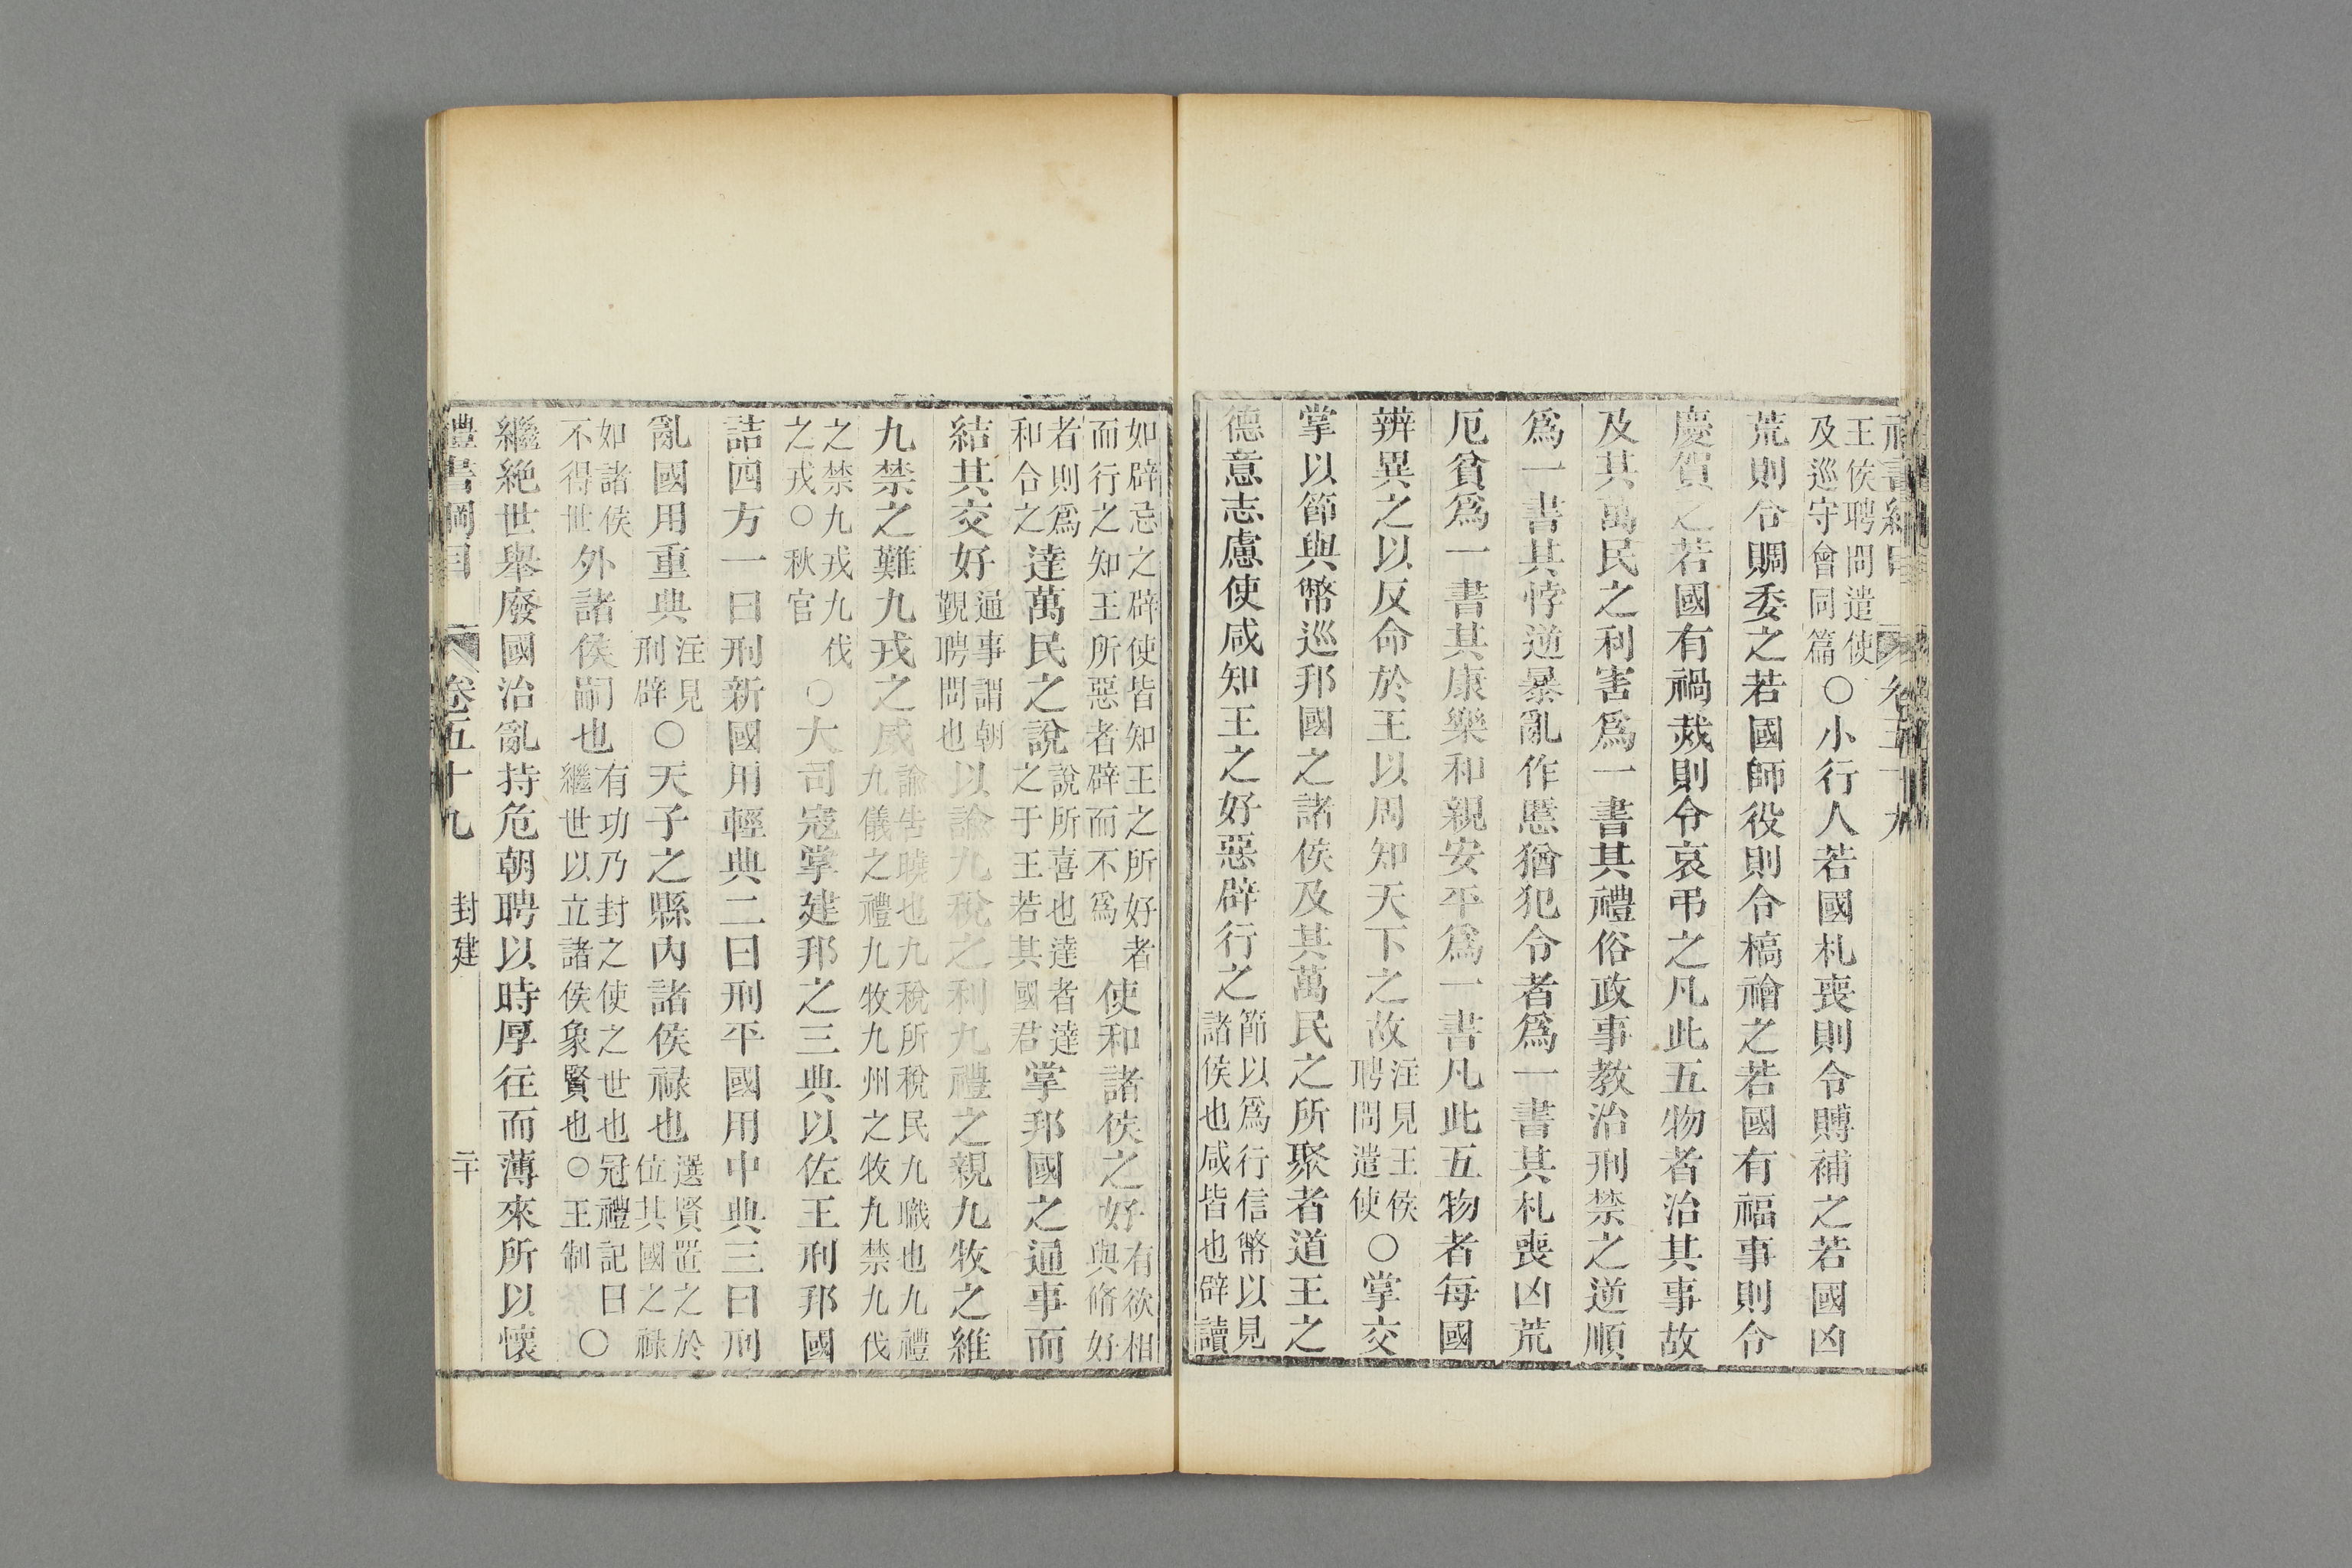 王侯聘問遣使
及巡守會同篇○小行人若國札喪則令賻補之若國凶
荒則令賙委之若國師役則令槁禬之若國有福事則令
慶賀之若國有禍烖則令哀弔之凡此五物者治其事故
及其萬民之利害爲一書其禮俗政事教治刑禁之逆順
爲一書其悖逆暴亂作慝猶犯令者爲一書其札喪凶荒
厄貧爲一書其康樂和親安平爲一書凡此五物者每國
辨異之以反命於王以周知天下之故注見王侯
聘問遣使○掌交
掌以節與幣巡邦國之諸侯及其萬民之所聚者道王之
德意志慮使咸知王之好惡辟行之節以爲行信幣以見
諸侯也咸皆也辟讀
如辟忌之辟使皆知王之所好者
而行之知王所惡者辟而不爲使和諸侯之好有欲相
與脩好
者則爲
和合之達萬民之說說所喜也達者達
之于王若其國君掌邦國之通事而
結其交好通事謂朝
覲聘問也以諭九稅之利九禮之親九牧之維
九禁之難九戎之威諭告曉也九稅所稅民九職也九禮
九儀之禮九牧九州之牧九禁九伐
之禁九戎九伐
之戎○秋官○大司寇掌建邦之三典以佐王刑邦國
詰四方一曰刑新國用輕典二曰刑平國用中典三曰刑
亂國用重典注見
刑辟○天子之縣內諸侯祿也選賢置之於
位其國之祿
如諸侯
不得世外諸侯嗣也有功乃封之使之世也冠禮記曰
繼世以立諸侯象賢也○王制○
繼絶世舉廢國治亂持危朝聘以時厚往而薄來所以懷
禮書綱目 卷五十九 封建 二十